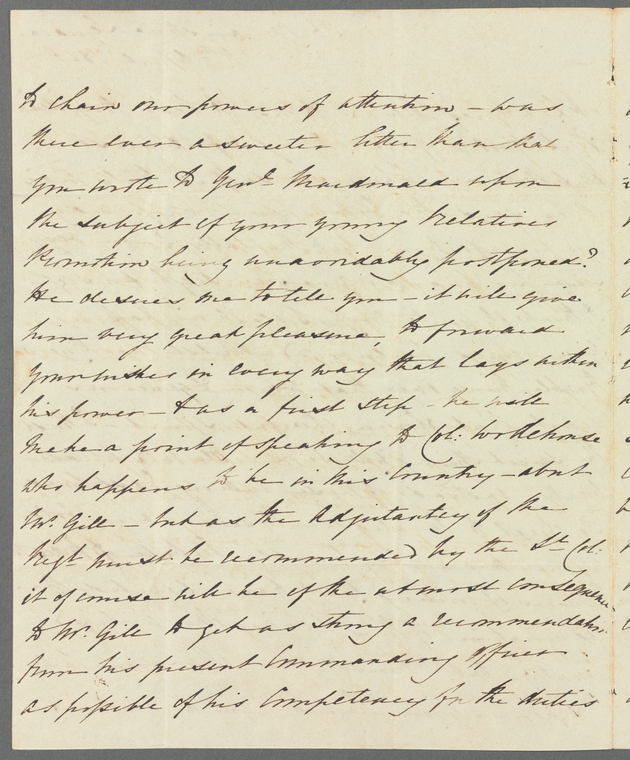 to chain our powers of attention – was
there ever a sweeter letter than that
you wrote to Genl. Macdonald upon
the subject of your young Relatives
Promotion being unavoidably postponed?
He desires me to tell you – it will give
him very great pleasure, to forward
your wishes in every way that lays within
his power – & as a first step – he will
make a point of speaking to Col: Wodehouse
who happens to be in this Country – about
Mr. Gill – but as the Adjutantcy of the
Regt must be recommended by the Lt Col:
it of course will be of the utmost consequence
to Mr. Gill to get as strong a recommendation
from his present Commanding Officer
as possible of his Competency for the duties